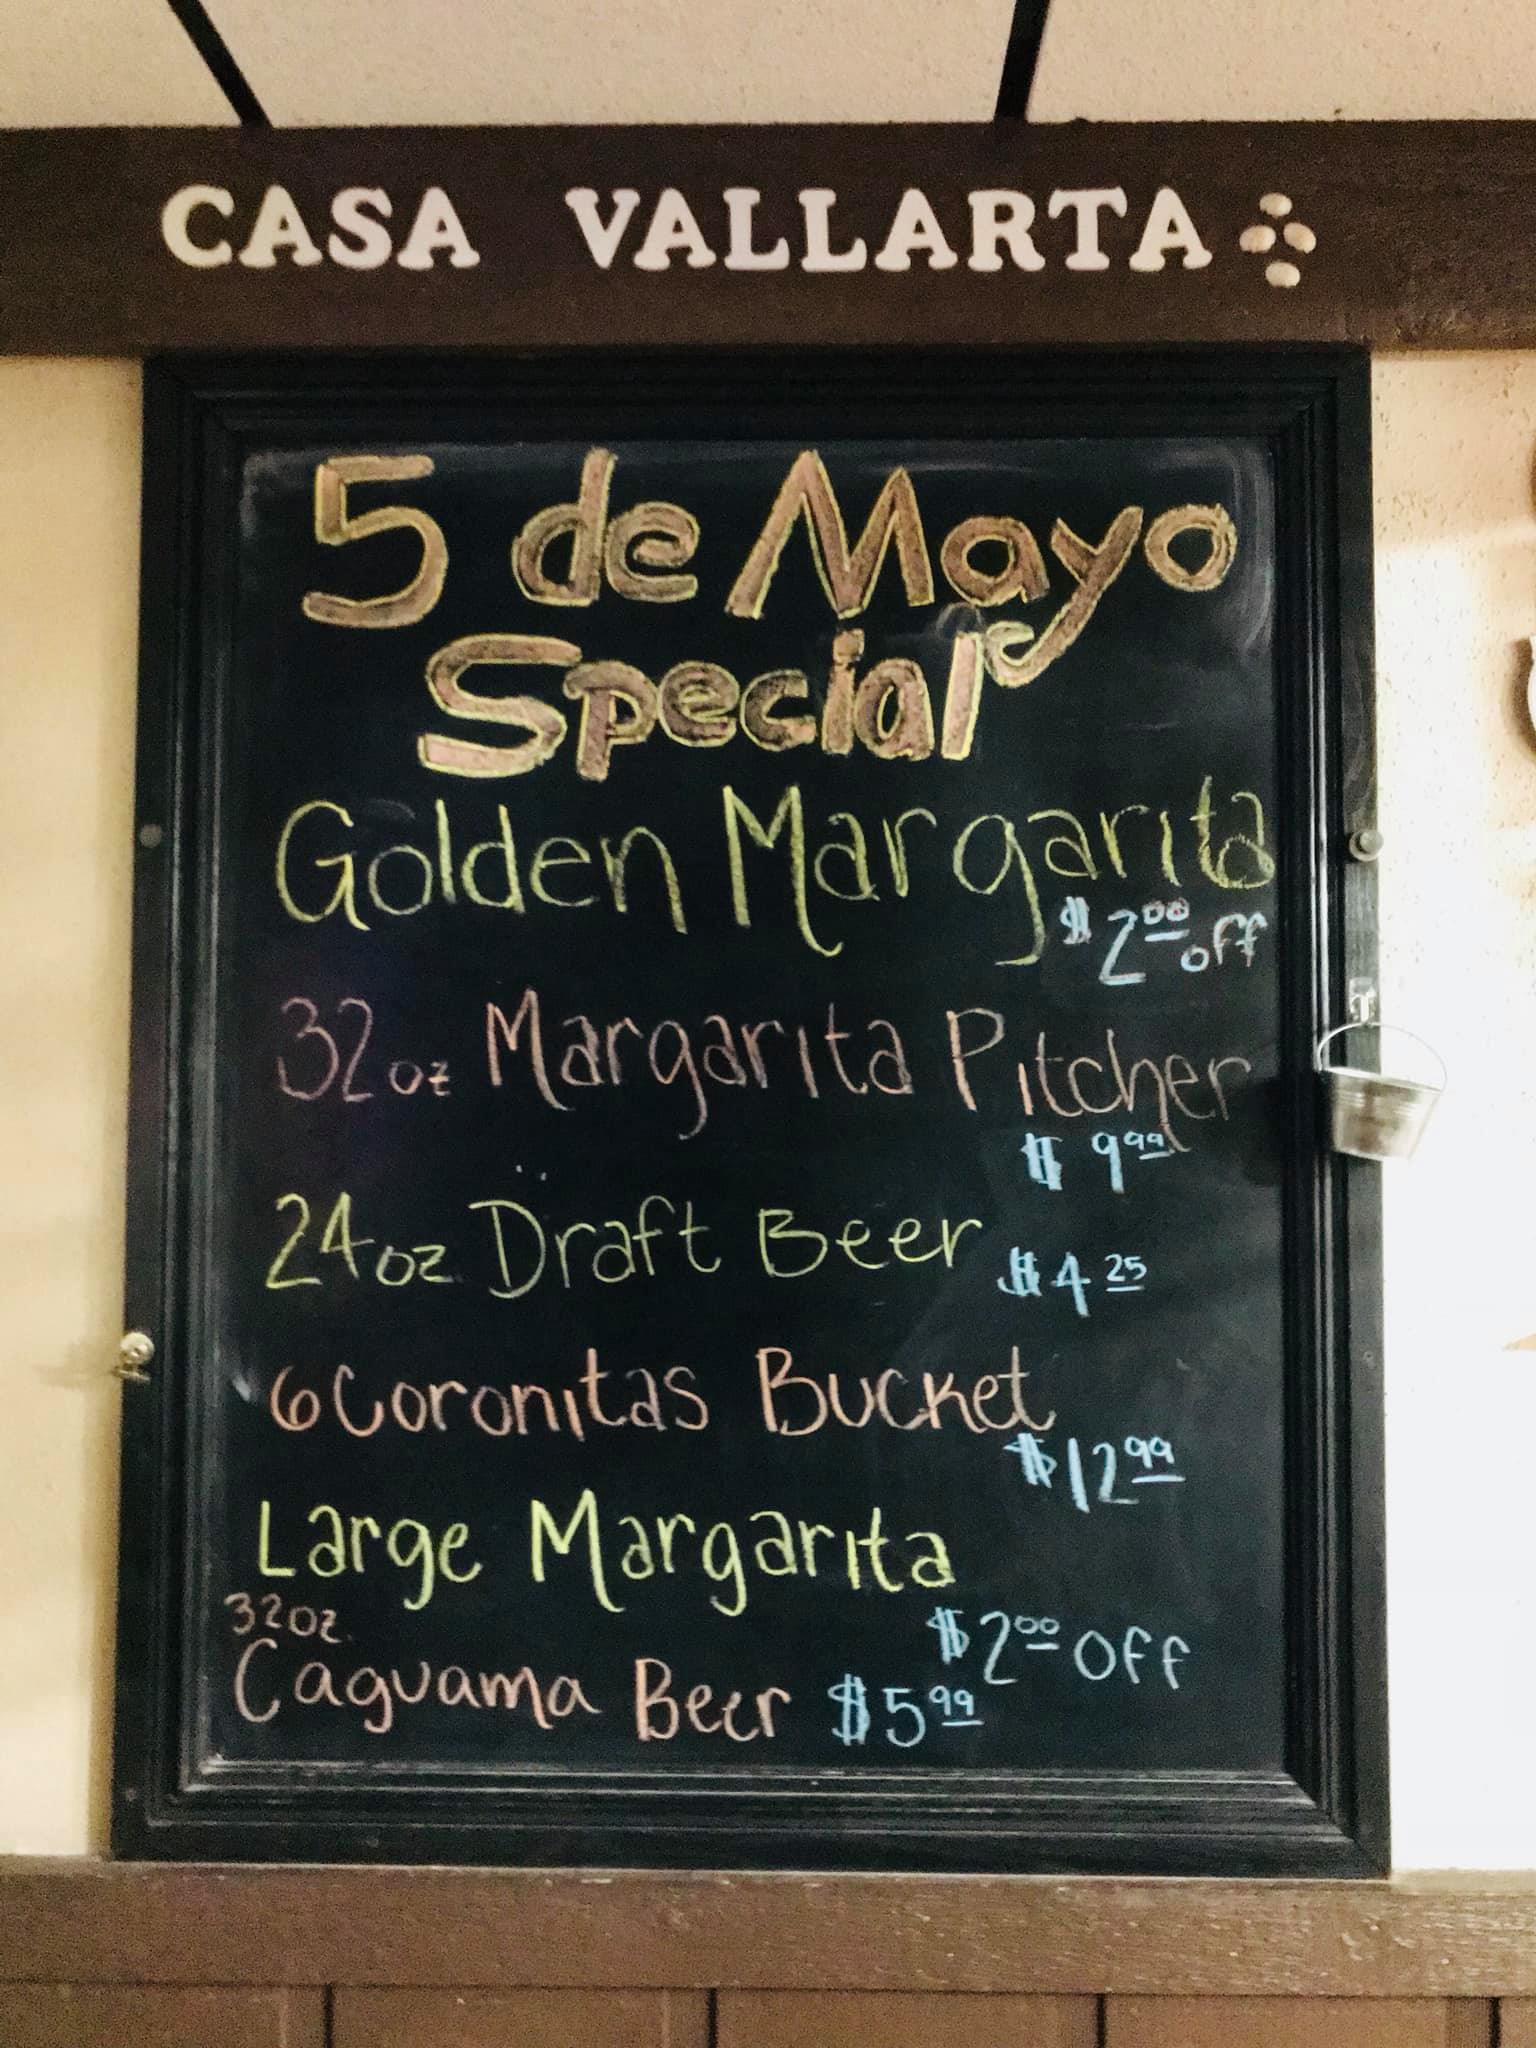 CASA VALLARTA
5 de Mayo
Special
Golden Margarita
$2.00 off
32oz Margarita Pitcher
$ 9.99
24oz Draft Beer $4.25
6 Coronitas Bucket
$12.99
Large Margarita
$2.00 Off
32oz.
Caguama Beer $5.99